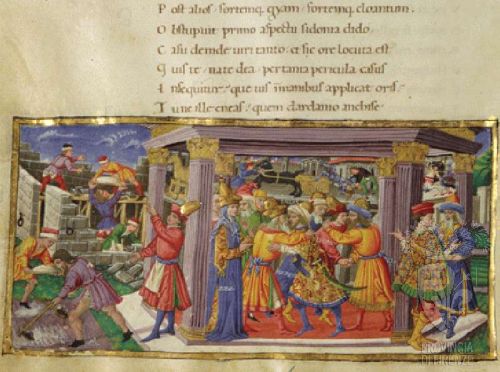 Post alios / fortemq; gyam / fortemq; cloantum.
Obstupuit primo aspectu sidonia dido
Casu deinde uiri tanto / et sic ore locuta est
Quis te / nate dea / per tanta pericula casus
Insequitur / que uis īmanibus applicat oris
Tune ille eneas / quem dardanio anchise
PROVINCIA
DI FIRENZE